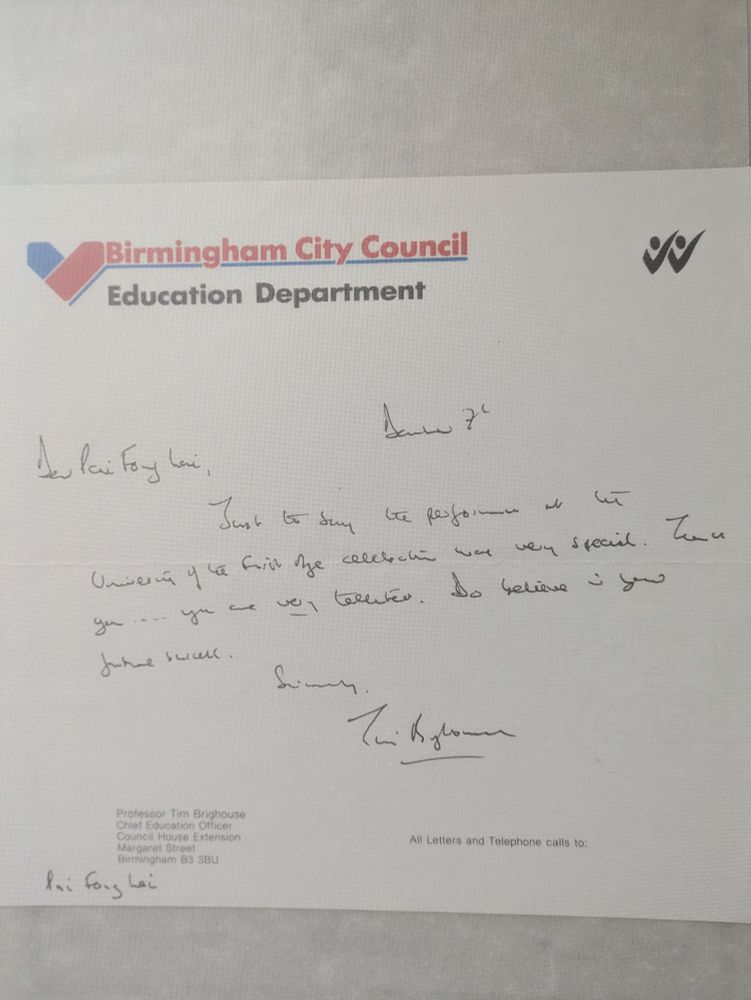 Birmingham City Council
Education Department
December 7th
Dear Pai Fong Lai,
Just to say the performance at the
University of the First Age celebration was very special. Thank
you .... you are very talented. Do believe in your
future success.
Sincerely,
Tim Brighouse
Professor Tim Brighouse
Chief Education Officer
Council House Extension
Margaret Street
Birmingham B3 3BU
All Letters and Telephone calls to:
Pai Fong Lai